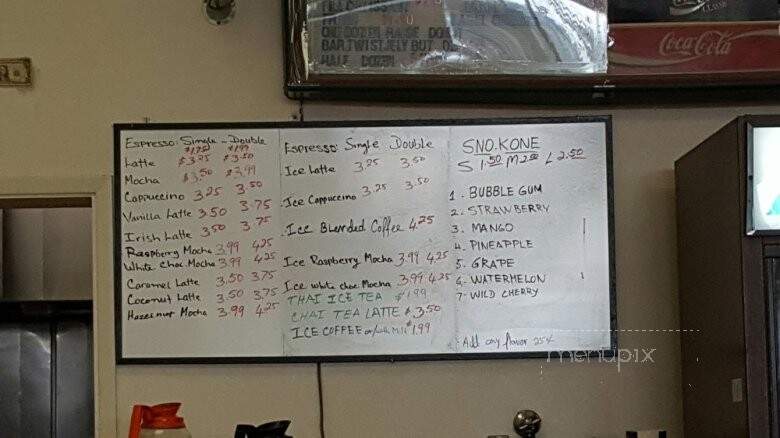 ONE DOZEN RAISE DO
BAR.TWIST,JELY BUT
HALF DOZEN
Coca-Cola
Espresso: Single - Double
$1.75 $1.99
Latte $3.25 $3.50
Mocha $3.50 $3.99
Cappuccino 3.25 3.50
Vanilla Latte 3.50 3.75
Irish Latte 3.50 3.75
Raspberry Mocha 3.99 4.25
White Choc Mocha 3.99 4.25
Caramel Latte 3.50 3.75
Coconut Latte 3.50 3.75
Hazelnut Mocha 3.99 4.25
Espresso: Single Double
Ice Latte 3.25 3.50
Ice Cappuccino 3.25 3.50
Ice Blended Coffee 4.25
Ice Raspberry Mocha 3.99 4.25
Ice white choc. Mocha 3.99 4.25
THAI ICE TEA $1.99
CHAI TEA LATTE $3.50
ICE COFFEE w/ Milk $1.99
SNO.KONE
S 1.50 M 2.00 L 2.50
1. BUBBLE GUM
2. STRAWBERRY
3. MANGO
4. PINEAPPLE
5. GRAPE
6. WATERMELON
7. WILD CHERRY
Add any flavor 25¢
menupix